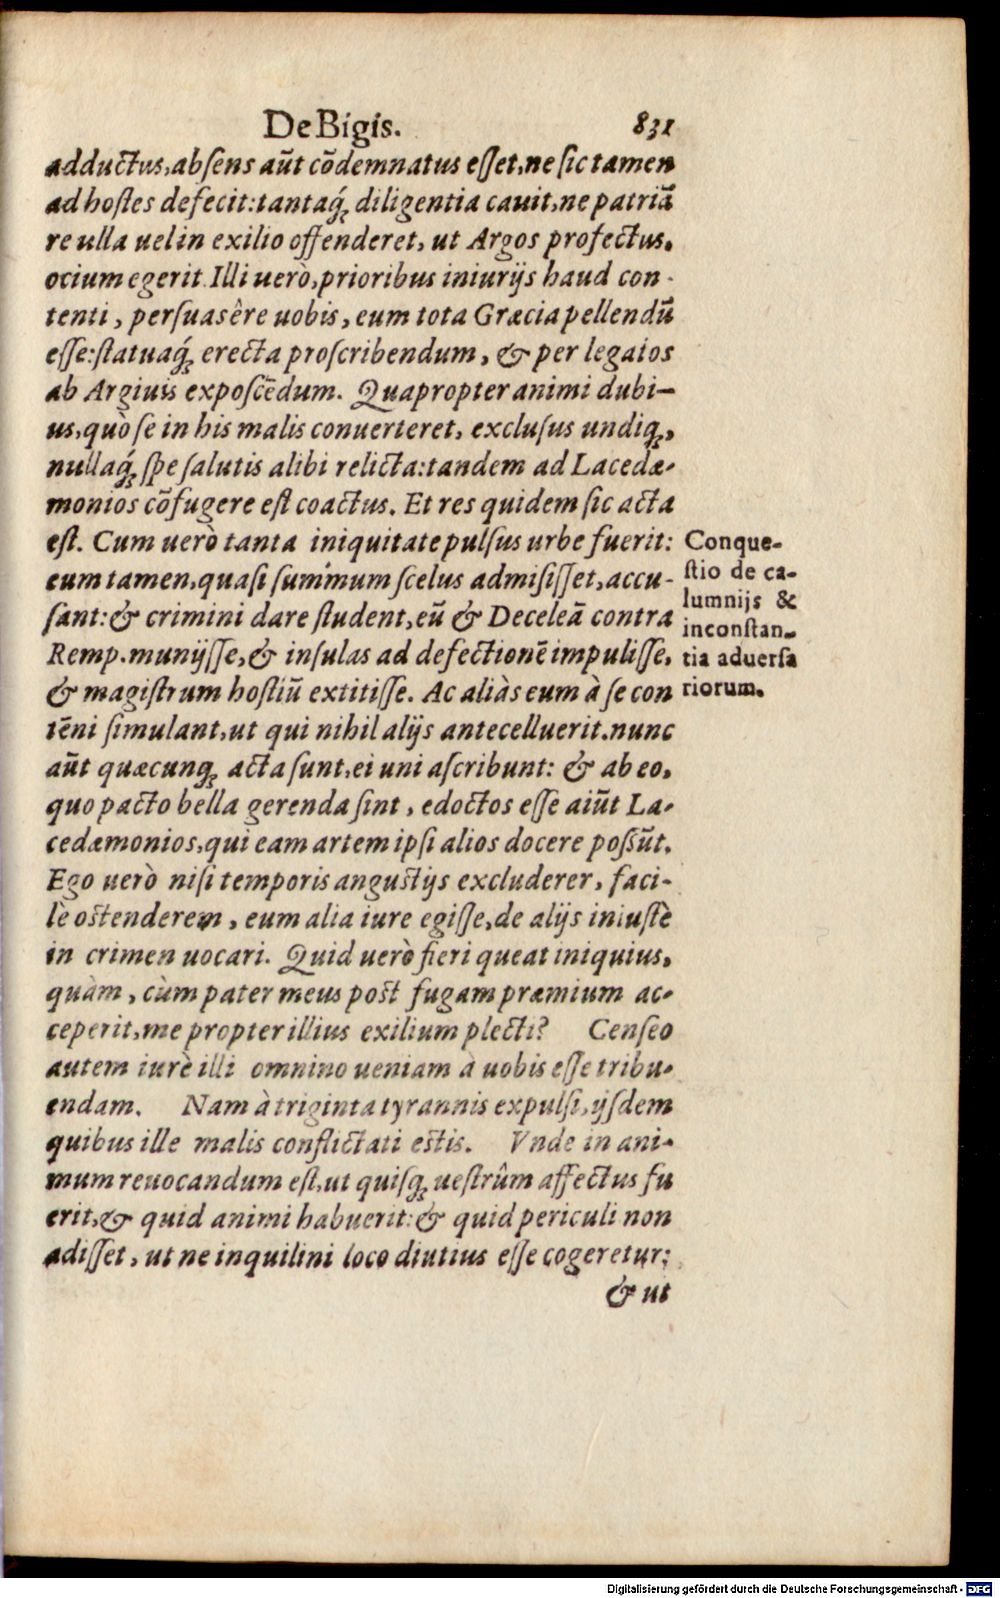 De Bigis. 831
adductus, absens aūt cōdemnatus esset, ne sic tamen
ad hostes defecit: tantaq́; diligentia cauit, ne patriā
re ulla uel in exilio offenderet, ut Argos profectus,
ocium egerit. Illi uerò, prioribus iniurijs haud con-
tenti, persuasêre uobis, eum tota Græcia pellendū
esse: statuaq́; erecta proscribendum, & per legatos
ab Argiuis exposcēdum. Quapropter animi dubi-
us, quò se in his malis conuerteret, exclusus undiq;,
nullaq́; spe salutis alibi relicta: tandem ad Lacedæ-
monios cōfugere est coactus. Et res quidem sic acta
est. Cum uerò tanta iniquitate pulsus urbe fuerit:
eum tamen, quasi summum scelus admisisset, accu-
sant: & crimini dare student, eū & Deceleā contra
Remp. munijsse, & insulas ad defectionē impulisse,
& magistrum hostiū extitisse. Ac aliàs eum à se con
tēni simulant, ut qui nihil alijs antecelluerit. nunc
aūt quæcunq; acta sunt, ei uni ascribunt: & ab eo,
quo pacto bella gerenda sint, edoctos esse aiūt La-
cedæmonios, qui eam artem ipsi alios docere possūt.
Ego uerò nisi temporis angustijs excluderer, faci-
lè ostenderem, eum alia iure egisse, de alijs iniustè
in crimen uocari. Quid uerò fieri queat iniquius,
quàm, cùm pater meus post fugam præmium ac-
ceperit, me propter illius exilium plecti? Censeo
autem iurè illi omnino ueniam à uobis esse tribu-
endam. Nam à triginta tyrannis expulsi, ijsdem
quibus ille malis conflictati estis. Vnde in ani-
mum reuocandum est, ut quisq; uestrûm affectus fu
erit, & quid animi habuerit: & quid periculi non
adisset, ut ne inquilini loco diutius esse cogeretur:
& ut
Conque-
stio de ca-
lumnijs &
inconstan-
tia aduersa
riorum.
Digitalisierung gefördert durch die Deutsche Forschungsgemeinschaft - DFG